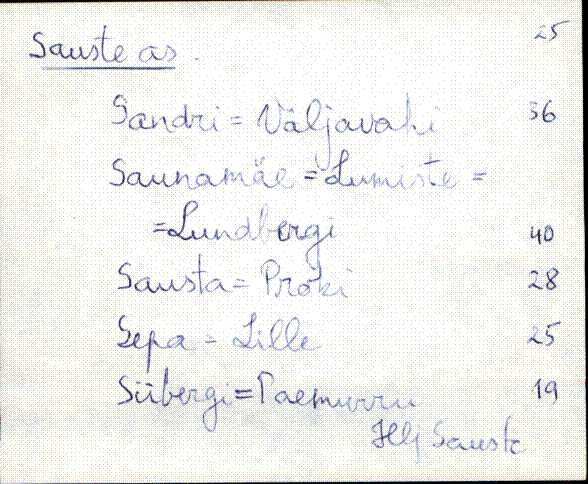 25
Sauste as.
Sandri = Väljavahi 36
Saunamäe = Lumiste =
= Lundbergi 40
Sausta = Proki 28
Sepa = Lille 25
Siibergi = Paemurru 19
Hlj Sauste